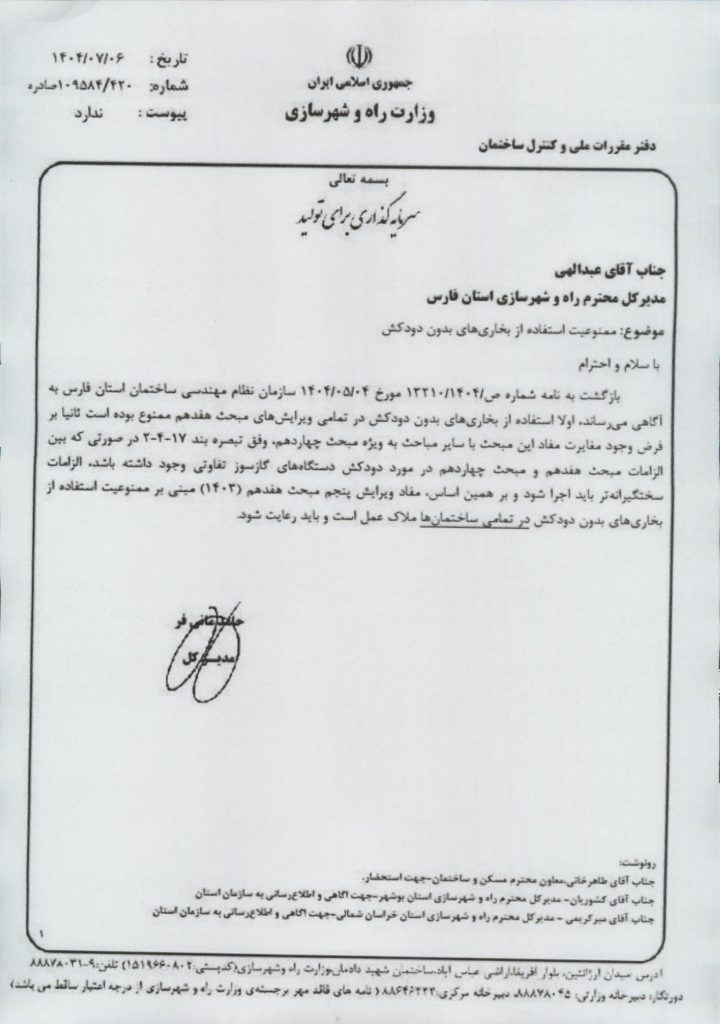 جمهوری اسلامی ایران
وزارت راه و شهرسازی
تاریخ : ۱۴۰۴/۰۷/۰۶
شماره: ۱۰۹۵۸۴/۴۲۰صادره
پیوست : ندارد
دفتر مقررات ملی و کنترل ساختمان
بسمه تعالی
سرمایه‌گذاری برای تولید
جناب آقای عبدالهی
مدیرکل محترم راه و شهرسازی استان فارس
موضوع: ممنوعیت استفاده از بخاری‌های بدون دودکش
با سلام و احترام
بازگشت به نامه شماره ص/۱۳۲۱۰/۱۴۰۴ مورخ ۱۴۰۴/۰۵/۰۴ سازمان نظام مهندسی ساختمان استان فارس به
آگاهی می‌رساند، اولا استفاده از بخاری‌های بدون دودکش در تمامی ویرایش‌های مبحث هفدهم ممنوع بوده است ثانیا بر
فرض وجود مغایرت مفاد این مبحث با سایر مباحث به ویژه مبحث چهاردهم، وفق تبصره بند ۱۷-۴-۲ در صورتی که بین
الزامات مبحث هفدهم و مبحث چهاردهم در مورد دودکش دستگاه‌های گازسوز تفاوتی وجود داشته باشد، الزامات
سختگیرانه‌تر باید اجرا شود و بر همین اساس، مفاد ویرایش پنجم مبحث هفدهم (۱۴۰۳) مبنی بر ممنوعیت استفاده از
بخاری‌های بدون دودکش در تمامی ساختمان‌ها ملاک عمل است و باید رعایت شود.
حامد مانی فر
مدیرکل
رونوشت:
جناب آقای طاهرخانی،معاون محترم مسکن و ساختمان-جهت استحضار.
جناب آقای کشوریان- مدیرکل محترم راه و شهرسازی استان بوشهر-جهت آگاهی و اطلاع‌رسانی به سازمان استان
جناب آقای میرکریمی- مدیرکل محترم راه و شهرسازی استان خراسان شمالی-جهت آگاهی و اطلاع‌رسانی به سازمان استان
۱
آدرس :میدان آرژانتین، بلوار آفریقا،اراضی عباس آباد،ساختمان شهید دادمان،وزارت راه وشهرسازی(کدپستی:۸۰۲-۱۵۱۹۶۶۰) تلفن:۹-۸۸۸۷۸۰۳۱
دورنگار: دبیرخانه وزارتی: ۸۸۸۷۸۰۴۵، دبیرخانه مرکزی:۸۸۶۴۶۲۲۲ ( نامه های فاقد مهر برجسته‌ی وزارت راه و شهرسازی از درجه اعتبار ساقط می باشد)